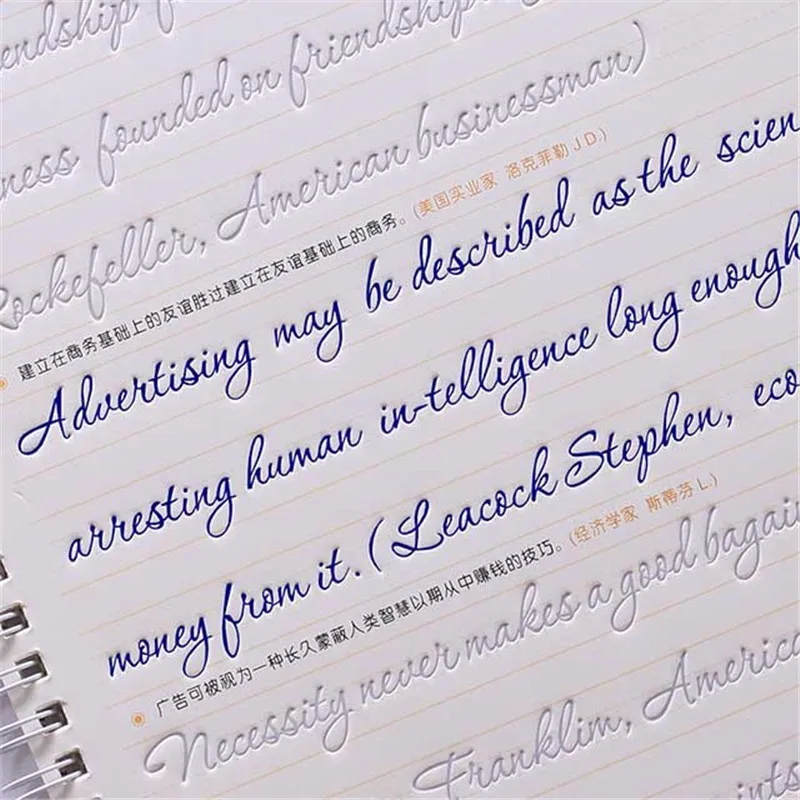 endship
ness founded on friendship
Rockefeller, American businessman)
建立在商务基础上的友谊胜过建立在友谊基础上的商务。(美国实业家 洛克菲勒 J.D.)
Advertising may be described as the scien
arresting human in-telligence long enough
money from it. (Leacock Stephen, eco
广告可被视为一种长久蒙蔽人类智慧以期从中赚钱的技巧。(经济学家 斯蒂芬 L.)
Necessity never makes a good bagain
Franklim, America